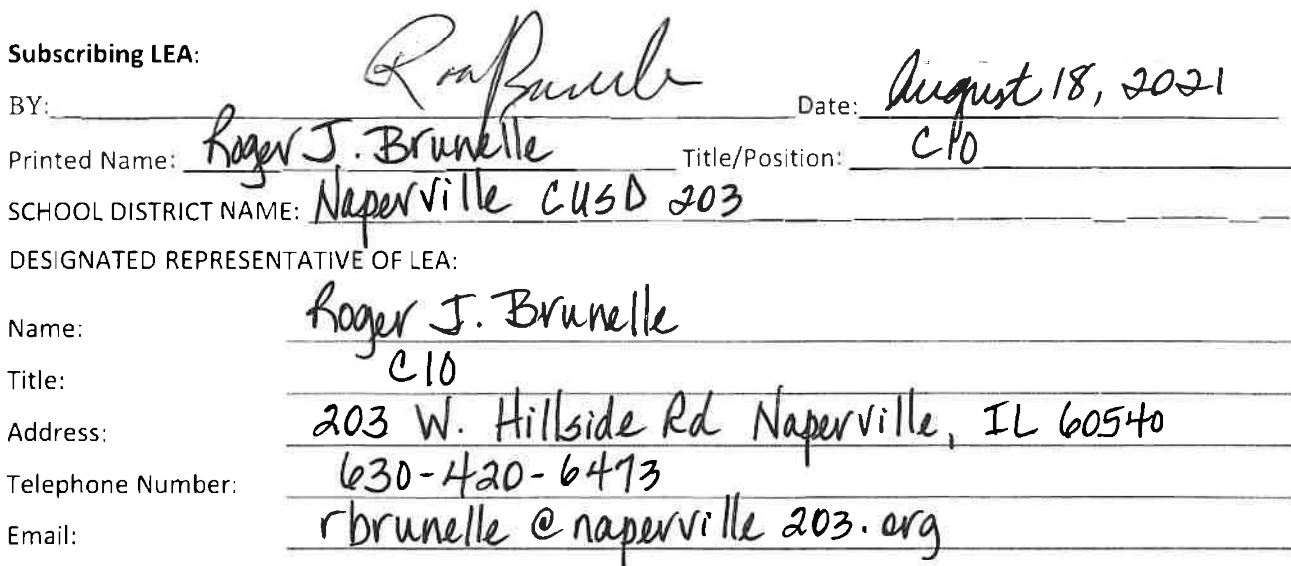 Subscribing LEA:
BY: Date: August 18, 2021
Printed Name: Roger J. Brunelle Title/Position: CIO
SCHOOL DISTRICT NAME: Naperville CUSD 203
DESIGNATED REPRESENTATIVE OF LEA:
Name: Roger J. Brunelle
Title: CIO
Address: 203 W. Hillside Rd Naperville, IL 60540
Telephone Number: 630-420-6473
Email: rbrunelle@naperville203.org